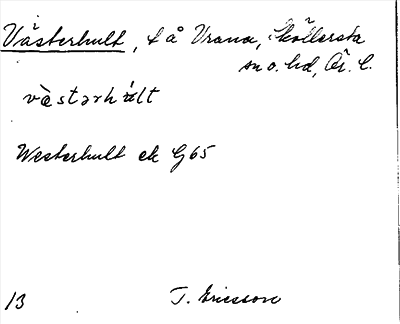 Västerhult, t å Vrana, Sköllersta
sn o. hd, Ör. l.
västərhult
Westerhult ek G65
13 T. Ericsson